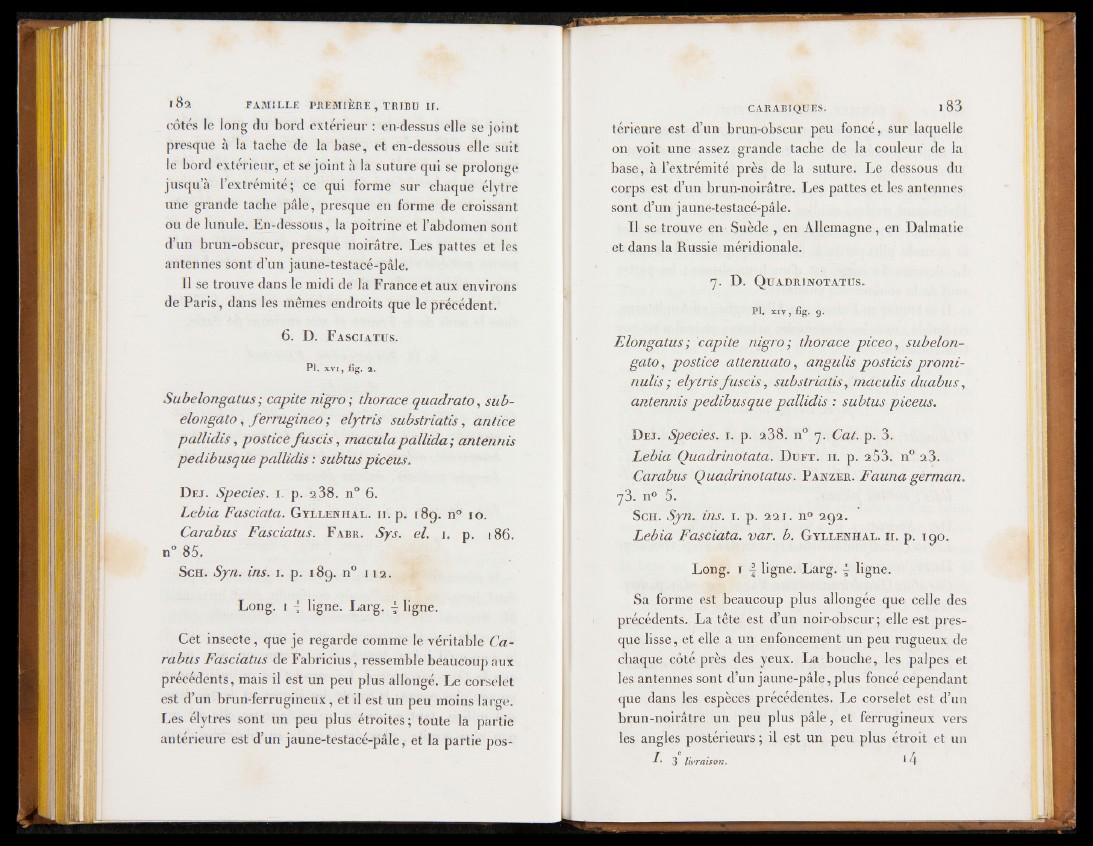 182 FAMILLE PREMIÈRE, TRIBU II.
côtés le long du bord extérieur : en-dessus elle se joint
presque à la tache de la base, et en-dessous elle suit
le bord extérieur, et se joint à la suture qui se prolonge
jusqu'à l'extrémité; ce qui forme sur chaque élytre
une grande tache pâle, presque en forme de croissant
ou de lunule. En-dessous, la poitrine et l'abdomen sont
d'un brun-obscur, presque noirâtre. Les pattes et les
antennes sont d'un jaune-testacé-pâle.
Il se trouve dans le midi de la France et aux environs
de Paris, dans les mêmes endroits que le précédent.
6. D. FASCIATUS.
Pl. XVI, fig. 2.
Subelongatus; capite nigro; thorace quadrato, sub-
elongato, ferrugineo; elytris substriatis, antice
pallidis, postice fuscis, macula pallida; antennis
pedibusque pallidis : subtus piceus.
DEJ. Species. I. p. 238. n° 6.
Lebia Fasciata. GYLLENHAL. II. p. 189. n° 10.
Carabus Fasciatus. FABR. Sys. el. I. p. 186.
n° 85.
SCH. Syn. ins. I. p. 189. n° 112.
Long. 1 ½ ligne. Larg. ½ ligne.
Cet insecte, que je regarde comme le véritable Ca-
rabus Fasciatus de Fabricius, ressemble beaucoup aux
précédents, mais il est un peu plus allongé. Le corselet
est d'un brun-ferrugineux, et il est un peu moins large.
Les élytres sont un peu plus étroites; toute la partie
antérieure est d'un jaune-testacé-pâle, et la partie pos-
CARABIQUES. 183
térieure est d'un brun-obscur peu foncé, sur laquelle
on voit une assez grande tache de la couleur de la
base, à l'extrémité près de la suture. Le dessous du
corps est d'un brun-noirâtre. Les pattes et les antennes
sont d'un jaune-testacé-pâle.
Il se trouve en Suède, en Allemagne, en Dalmatie
et dans la Russie méridionale.
7. D. QUADRINOTATUS.
Pl. XIV, fig. 9.
Elongatus; capite nigro; thorace piceo, subelon-
gato, postice attenuato, angulis posticis promi-
nulis; elytris fuscis, substriatis, maculis duabus,
antennis pedibusque pallidis : subtus piceus.
DEJ. Species. I. p. 238. n° 7. Cat. p. 3.
Lebia Quadrinotata. DUFT. II. p. 253. n° 23.
Carabus Quadrinotatus. PANZER. Fauna german.
73. n° 5.
SCH. Syn. ins. I. p. 221. n° 292.
Lebia Fasciata. var. b. GYLLENHAL. II. p. 190.
Long. 1 ¾ ligne. Larg. ½ ligne.
Sa forme est beaucoup plus allongée que celle des
précédents. La tête est d'un noir-obscur; elle est pres-
que lisse, et elle a un enfoncement un peu rugueux de
chaque côté près des yeux. La bouche, les palpes et
les antennes sont d'un jaune-pâle, plus foncé cependant
que dans les espèces précédentes. Le corselet est d'un
brun-noirâtre un peu plus pâle, et ferrugineux vers
les angles postérieurs; il est un peu plus étroit et un
I. 3e livraison. 14